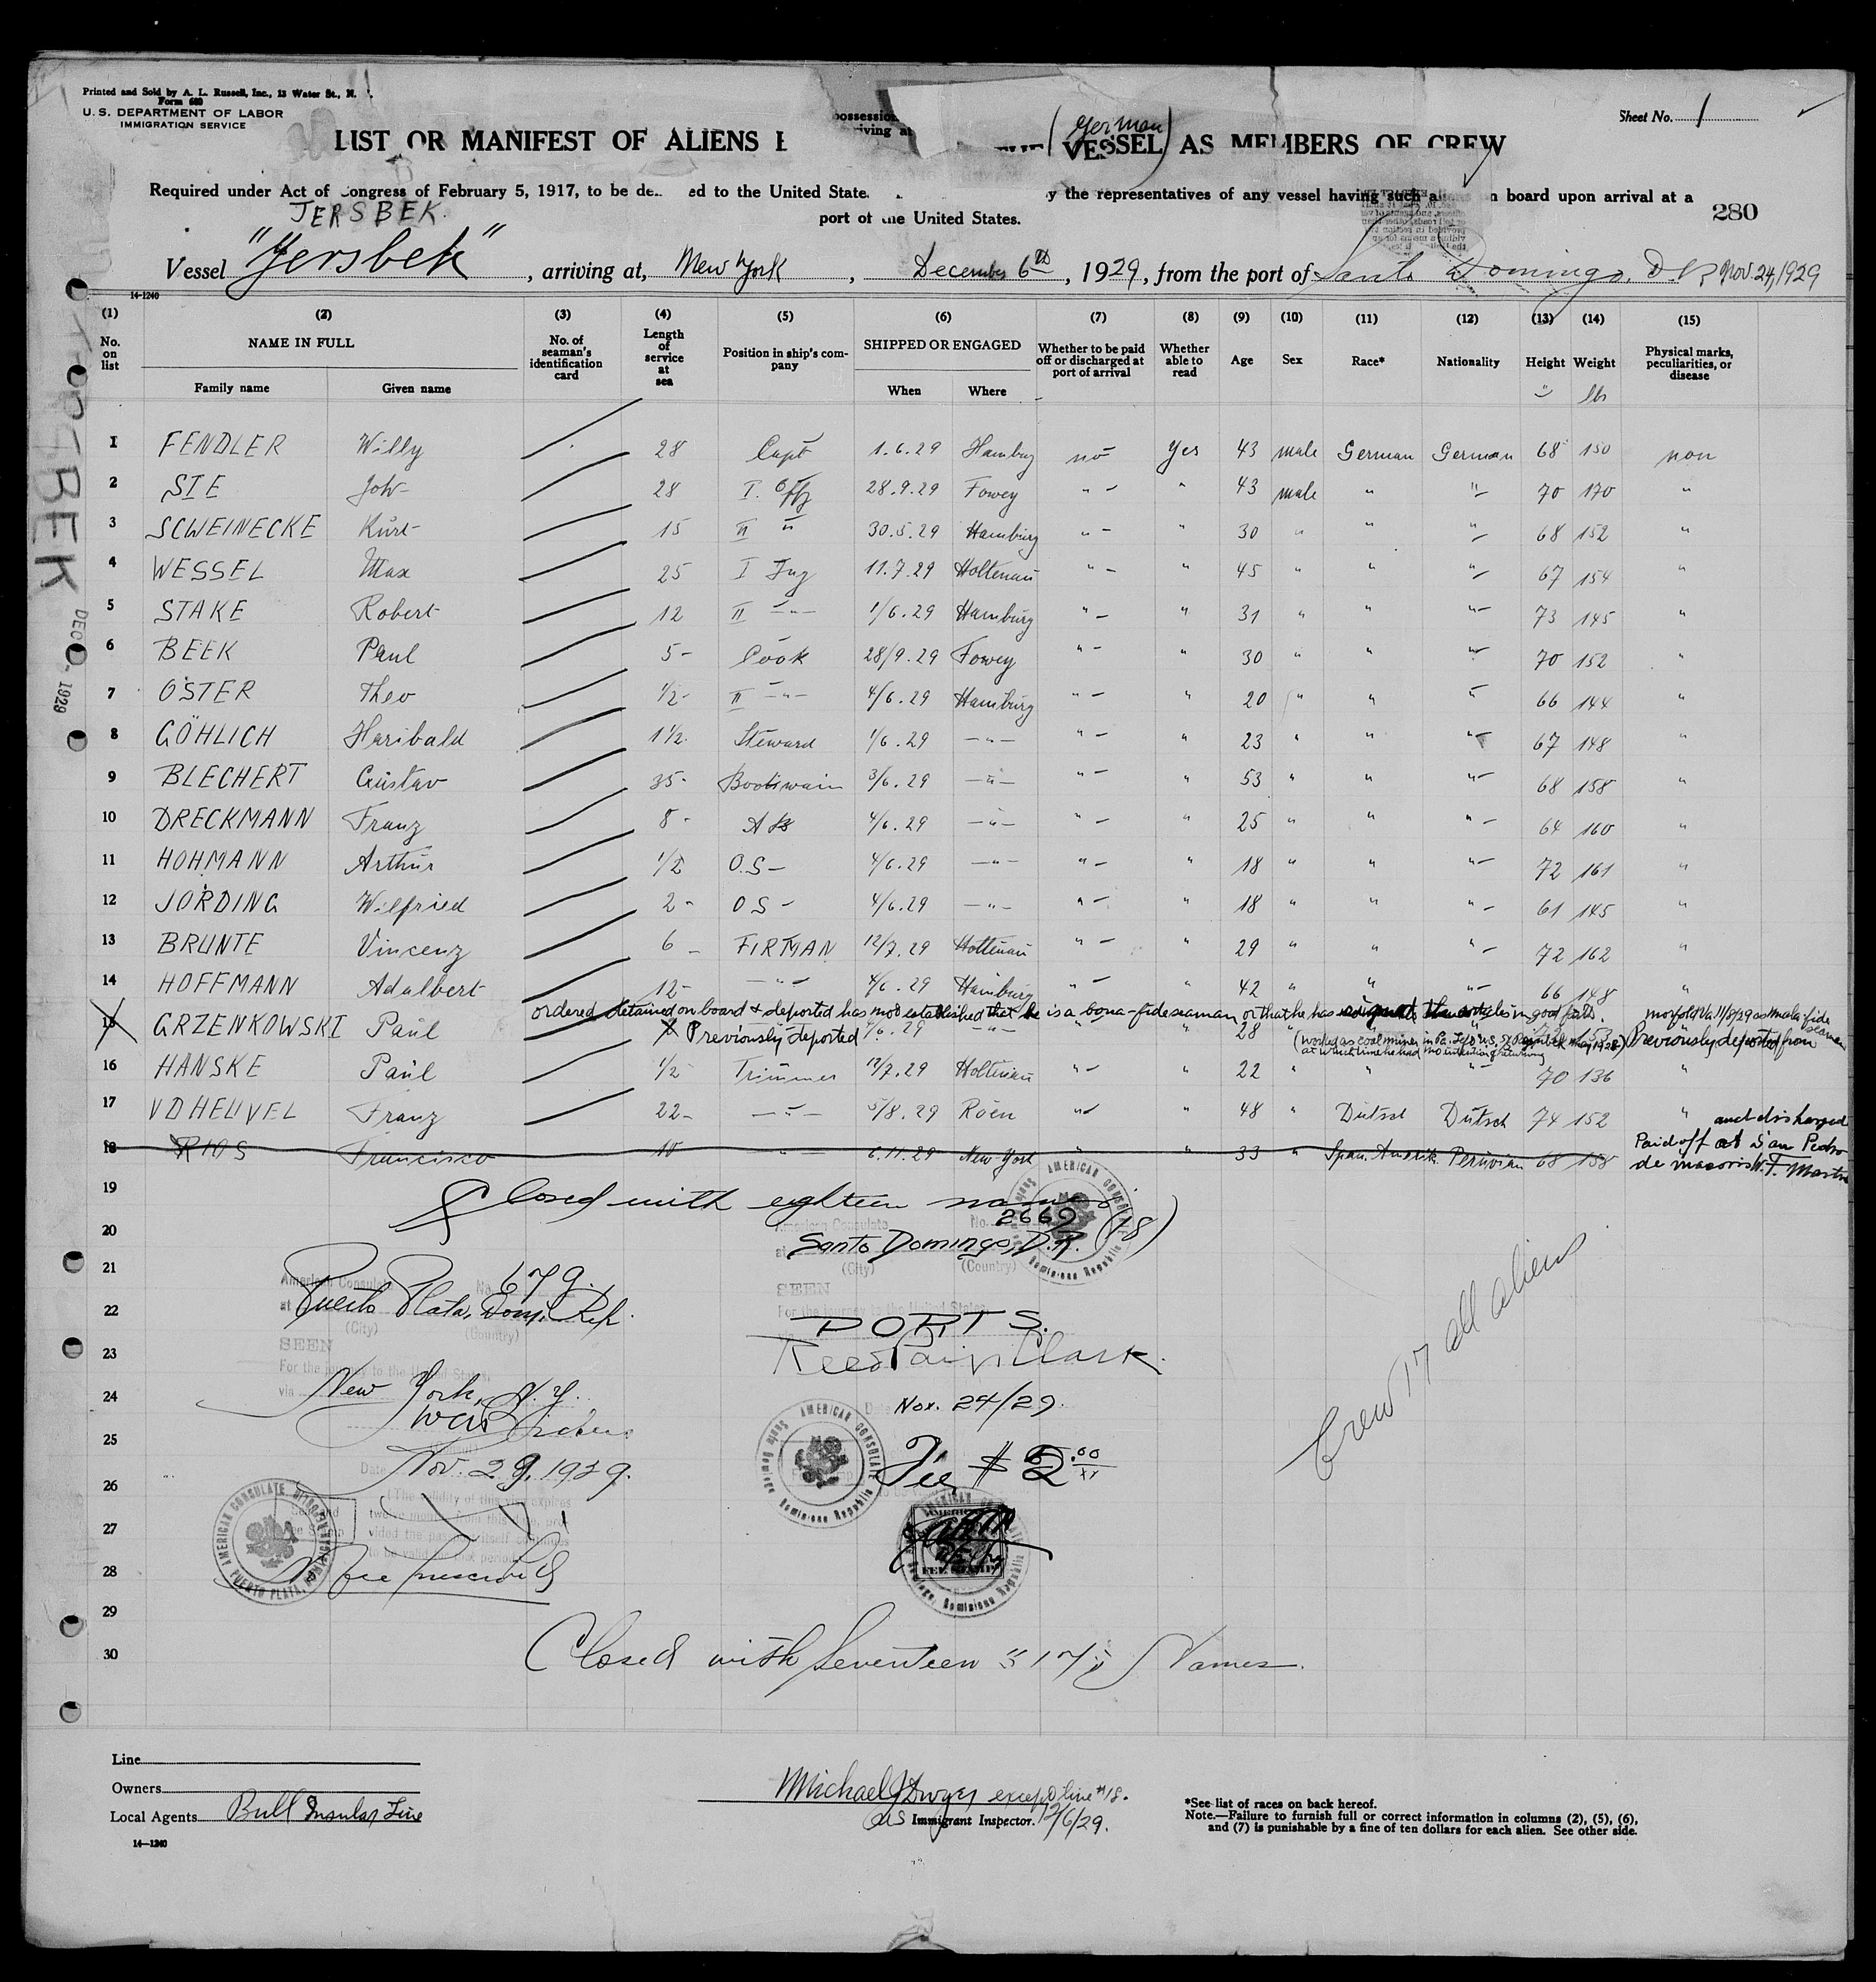 Printed and Sold by A. L. Russell, Inc., 13 Water St., N.
Form 689
U. S. DEPARTMENT OF LABOR
IMMIGRATION SERVICE
Sheet No. 1
possession
riving at
(German)
LIST OR MANIFEST OF ALIENS E THE VESSEL AS MEMBERS OF CREW
Required under Act of Congress of February 5, 1917, to be de ed to the United State y the representatives of any vessel having such a n board upon arrival at a
port of the United States.
280
JERSBEK.
Vessel "Jersbek", arriving at, New York, December 6th, 1929, from the port of Santo Domingo, D.R. Nov. 24, 1929
14-1240
(1) (2) (3) (4) (5) (6) (7) (8) (9) (10) (11) (12) (13) (14) (15)
No. on list
NAME IN FULL
Family name Given name
No. of seaman's identification card
Length of service at sea
Position in ship's company
SHIPPED OR ENGAGED
When Where
Whether to be paid off or discharged at port of arrival
Whether able to read
Age Sex Race* Nationality Height Weight
Physical marks, peculiarities, or disease
lbs
1 FENDLER Willy 28 Capt 1.6.29 Hamburg no Yes 43 male German German 68 150 non
2 STE Joh- 28 I. Offz 28.9.29 Fowey " - " 43 male " " 70 170 "
3 SCWEINECKE Kurt 15 II " 30.5.29 Hamburg " - " 30 " " " 68 152 "
4 WESSEL Max 25 I Ing 11.7.29 Holtenau " - " 45 " " " 67 154 "
5 STAKE Robert 12 II -"- 1/6.29 Hamburg " - " 31 " " " 73 145 "
6 BEEK Paul 5- Cook 28/9.29 Fowey " - " 30 " " " 70 152 "
7 OSTER Theo 1/2- II -"- 4/6.29 Hamburg " - " 20 " " " 66 144 "
8 GÖHLICH Haribald 1 1/2. Steward 1/6.29 -"- " - " 23 " " " 67 148 "
9 BLECHERT Gustav 35- Bootswain 3/6.29 -"- " - " 53 " " " 68 158 "
10 DRECKMANN Franz 8- AB 4/6.29 -"- " - " 25 " " " 64 160 "
11 HOHMANN Arthur 1/2 O.S- 4/6.29 -"- " - " 18 " " " 72 161 "
12 JORDING Wilfried 2- OS- 4/6.29 -"- " - " 18 " " " 61 145 "
13 BRUNTE Vincenz 6- FIRTMAN 12/7.29 Holtenau " - " 29 " " " 72 162 "
14 HOFFMANN Adalbert 12- -"- 4/6.29 Hamburg " - " 42 " " " 66 148 "
ordered detained on board & deported has not established that he is a bona-fide seaman or that he has signed the articles in good faith. Norfold Va. 11/8/29 as mala fide seaman
15 GRZENKOWSKI Paul X Previously deported /6.29 -"- 28 Previously deported from
(worked as coal miner in Pa.
at which time he had no intention of returning
16 HANSKE Paul 1/2 Trimmer 12/7.29 Holtenau " - " 22 " " " 70 136 "
17 VDHEUVEL Franz 22- -"- 5/8.29 Roen " 48 " Dutsch Dutsch 74 152 "
18 RIOS Francisco 10 -"- 6.11.29 New York " " 33 " Span. Amerik. Peruvian 68 158
and discharged
Paid off at San Pedro
de Macoris W. F. Martin
19 Closed with eighteen names (18)
20
21
22
23
24
25
26
27
28
29
30
American Consulate No. 2669
at Santo Domingo, D.R.
(City) (Country)
SEEN
For the journey to the United States
PORTS.
Reed Paige Clark.
Nov. 24/29.
Fee $2.00
AMERICAN CONSULATE Santo Domingo Dominican Republic
FEE STAMP
American Consulate No. 679.
at Puerto Plata, Dom. Rep.
(City) (Country)
SEEN
For the journey to the United States,
via New York, N.Y.
Date Nov. 29, 1929.
(The validity of this visa expires
twelve months from this date, pro-
vided the passport itself continues
to be valid for that period.
AMERICAN CONSULATE PUERTO PLATA, DOMINICAN REPUBLIC
No fee prescribed
Crew 17 all aliens
Closed with Seventeen "17" Names.
Line
Owners
Local Agents Bull Insular Line
14-1240
Michael J Dwyer except line #18.
US Immigrant Inspector. 12/6/29.
*See list of races on back hereof.
Note.—Failure to furnish full or correct information in columns (2), (5), (6),
and (7) is punishable by a fine of ten dollars for each alien. See other side.
BEK
DEC 1929